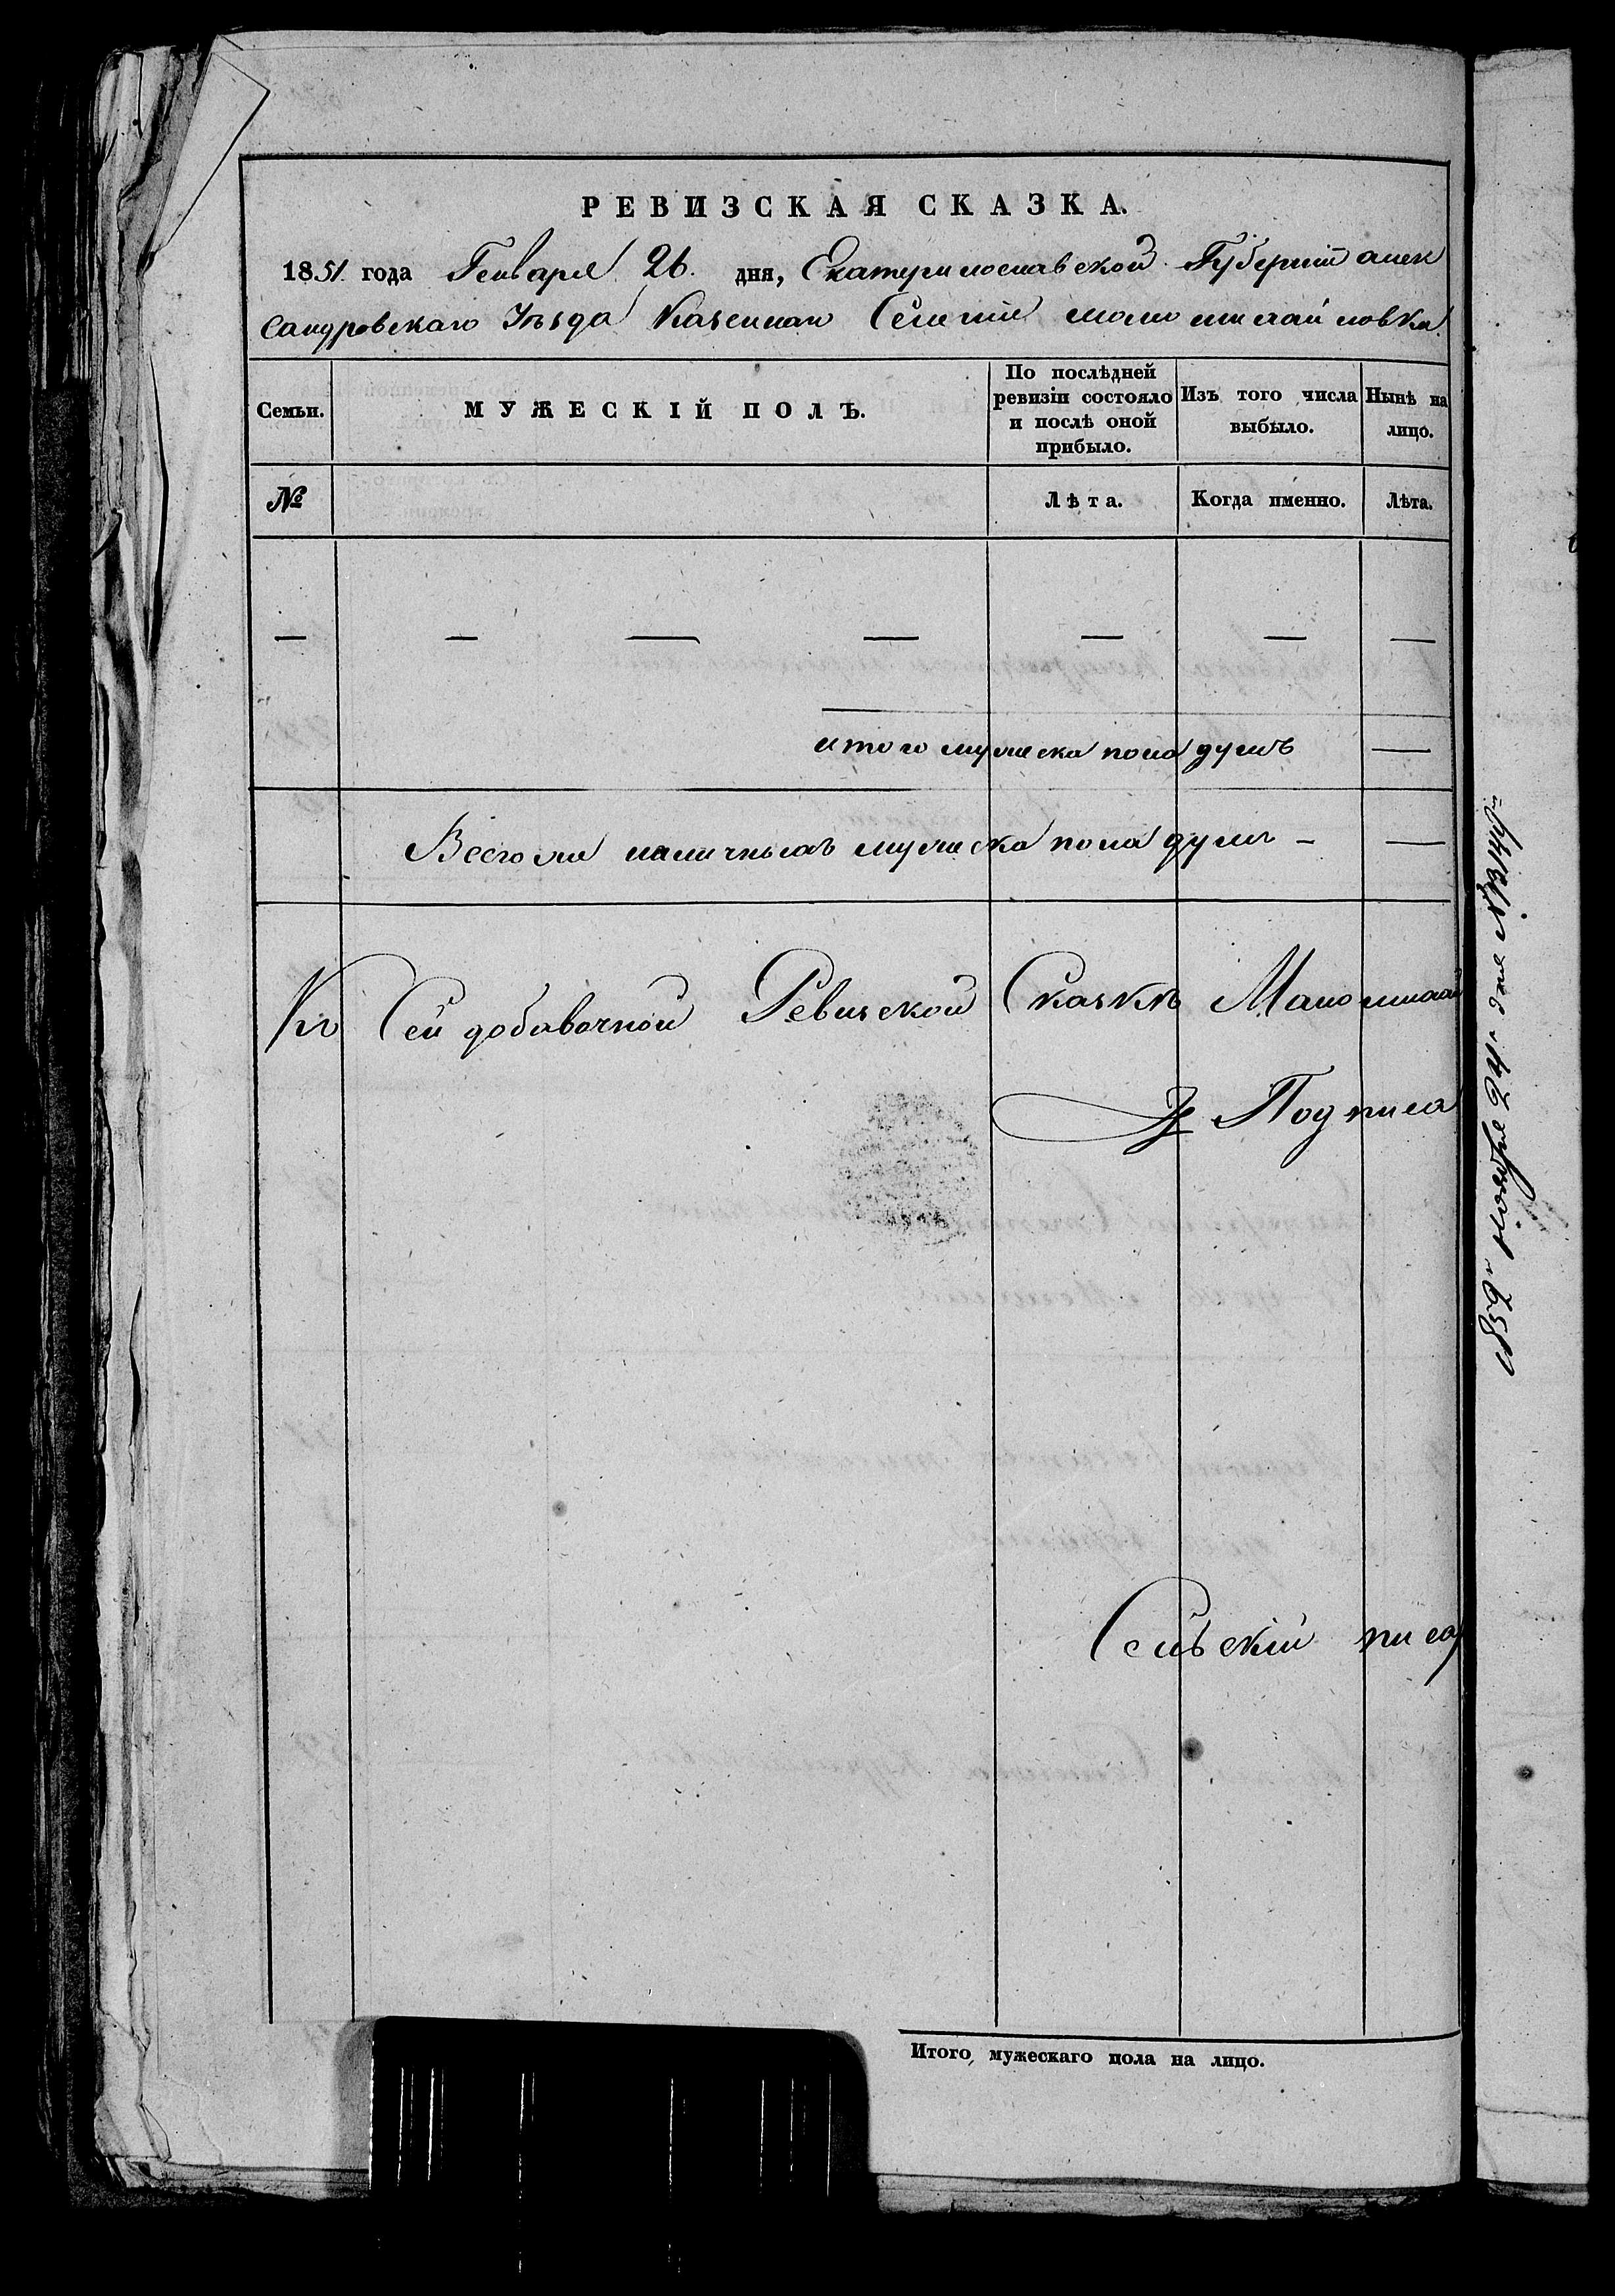 РЕВИЗСКАЯ СКАЗКА.
1851 года Генваря 26. дня, Екатеринославской Губерніи алек
сандровскаго Уѣзда Казеннаго Селенія
Семьи.
МУЖЕСКІЙ ПОЛЪ.
По послѣдней ревизіи состояло и послѣ оной прибыло.
Изъ того числа выбыло.
Нынѣ на лицо.
№
Лѣта.
Когда именно.
Лѣта.
— — — — — — —
итого мужеска пола душъ —
Всего же наличныхъ мужеска пола душъ — —
Къ Сей добавочной Ревизской Сказкѣ Маломихай
Подписа
Сельскій писар
Итого мужескаго пола на лицо.
1859го Ноября 24го дня №